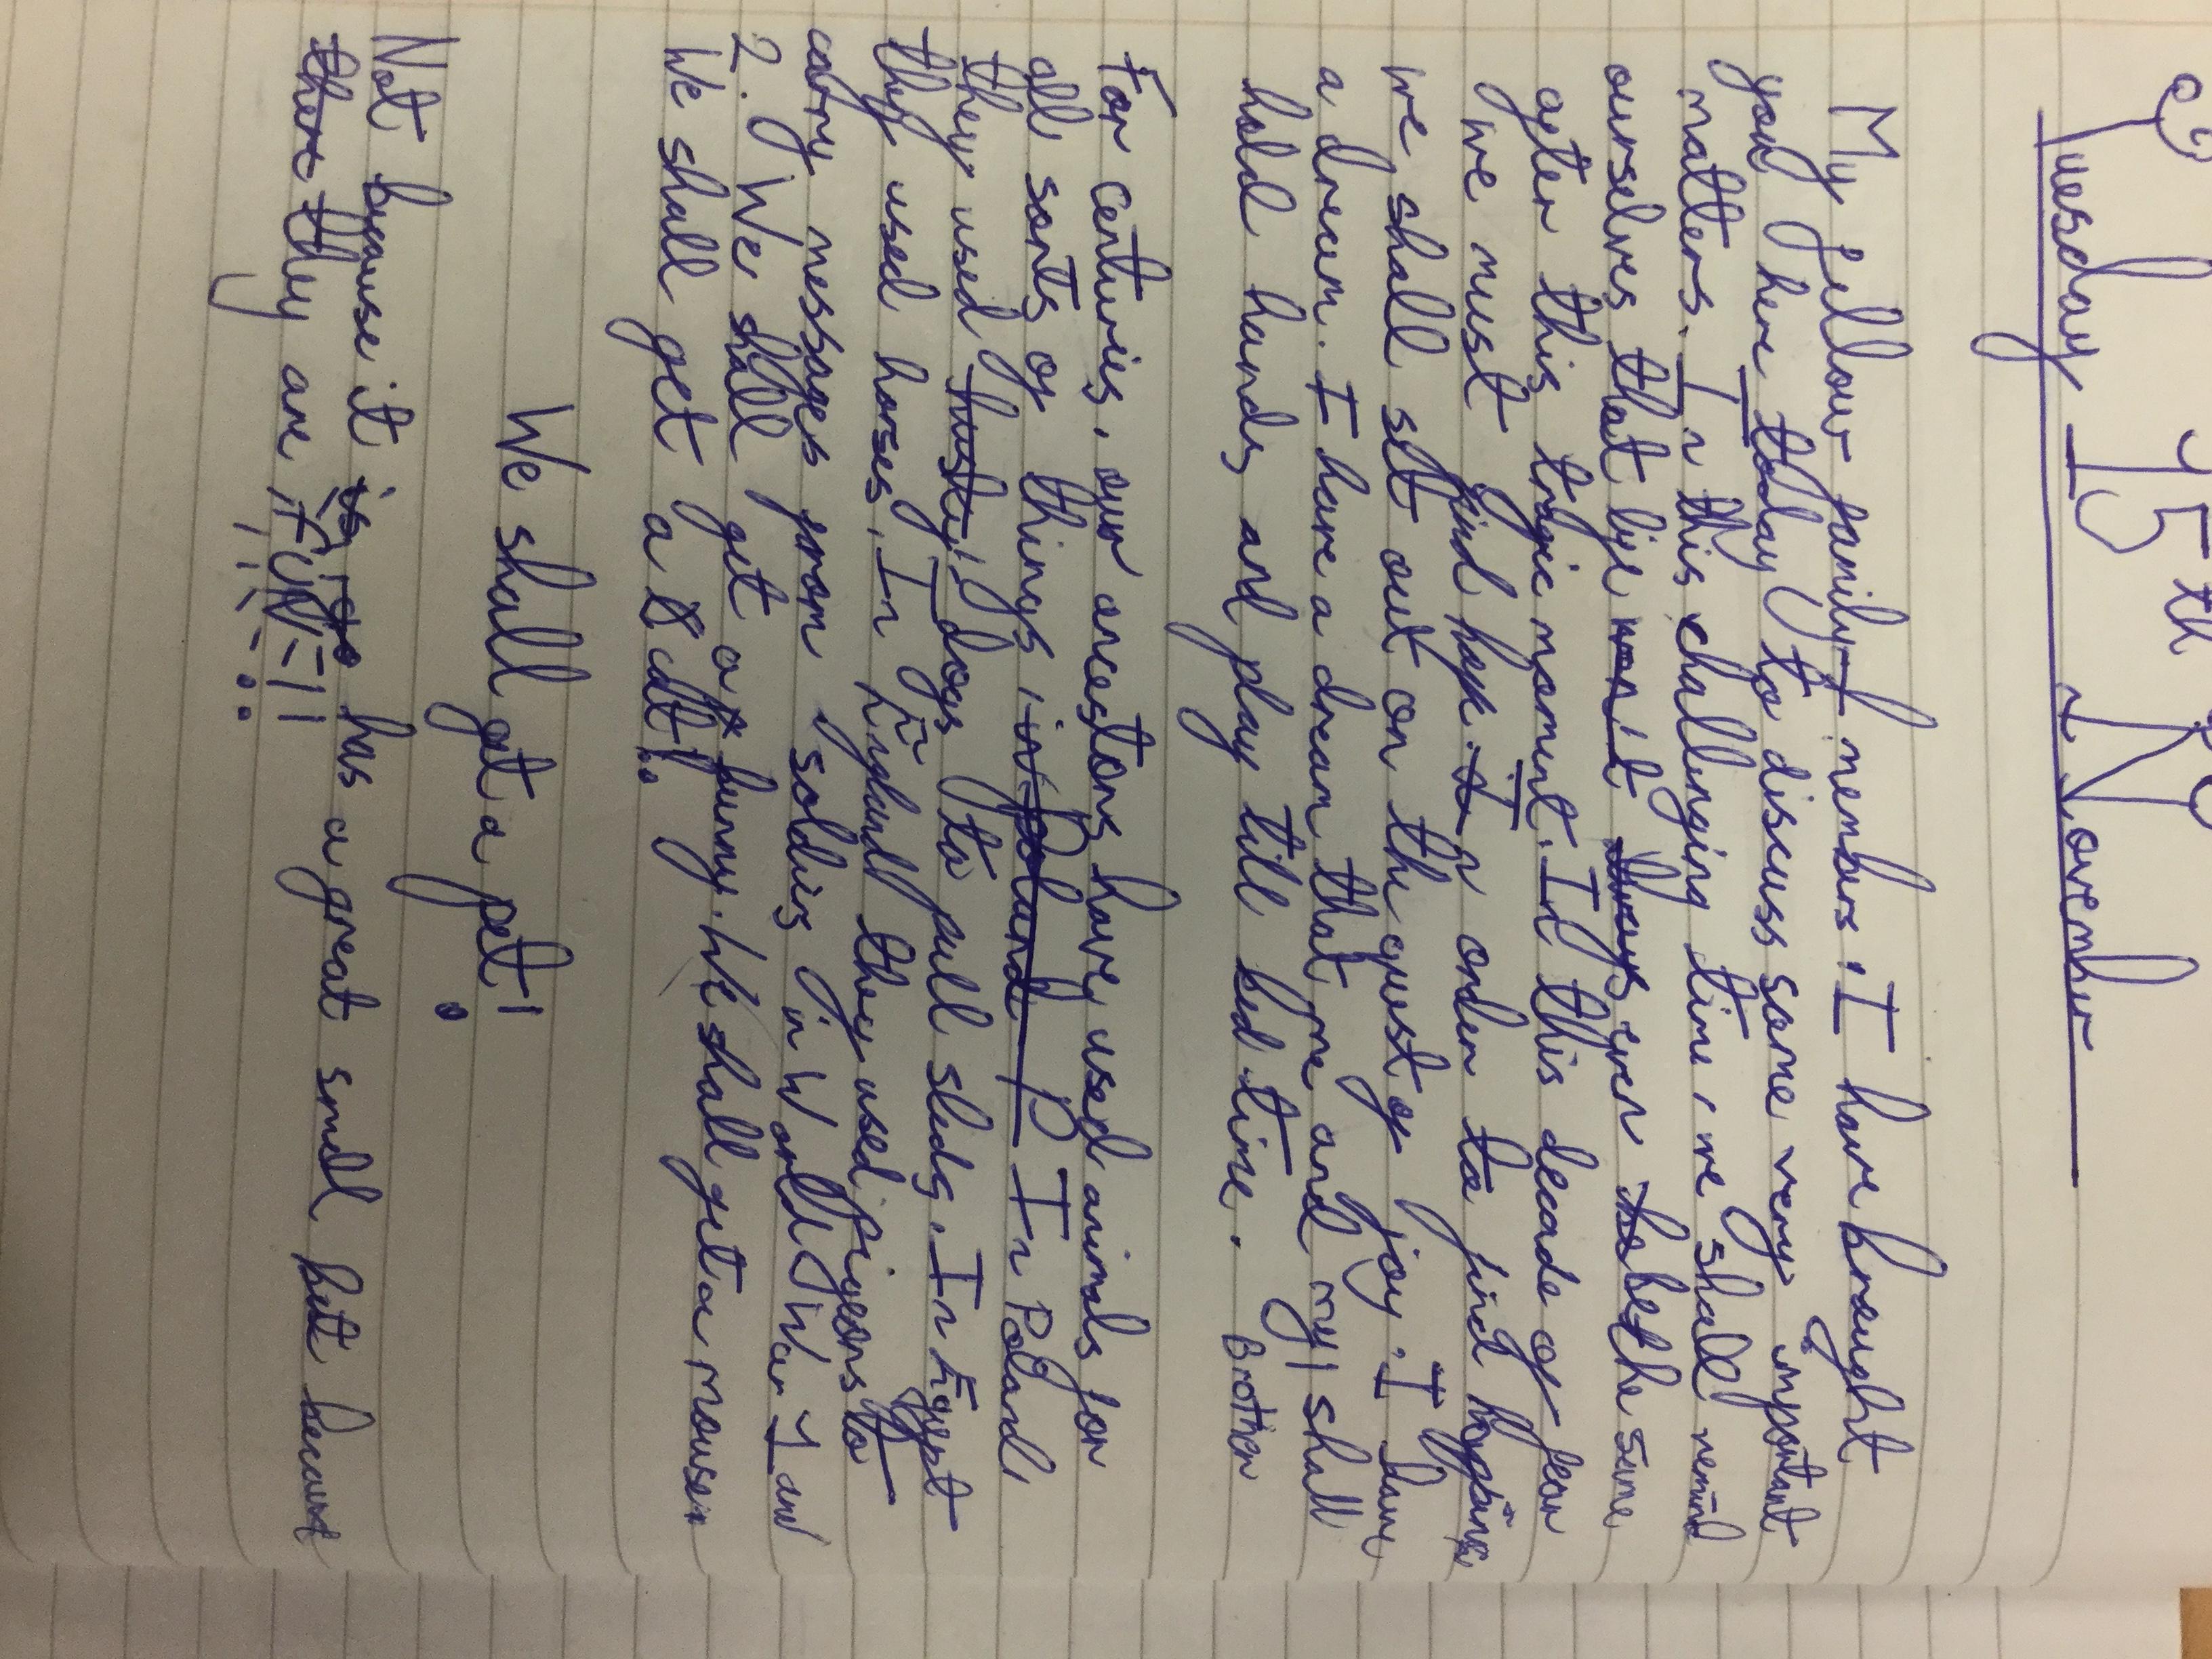 Tuesday 15th November
My fellow family members, I have brought
you here today to discuss some very important
matters. In this challenging time, we shall remind
ourselves that life won't always ever be the same
after this tragic moment. In this decade of fear
we must find hope. In order to find hope
we shall set out on the quest of joy. I have
a dream. I have a dream that me and my shall
hold hands and play till bed time. Brother
For centuries, our ancestors have used animals for
all sorts of things, in Poland P In Poland,
they used husky dogs to pull sleds. In Egypt
they used horses. In England they used pigeons to
carry messages from soldiers in World War 1 and
2. We shall get a bunny. We shall get a mouse.
We shall get a cat!
We shall get a pet!
Not because it is has a great smell but because
there they are FUN!!